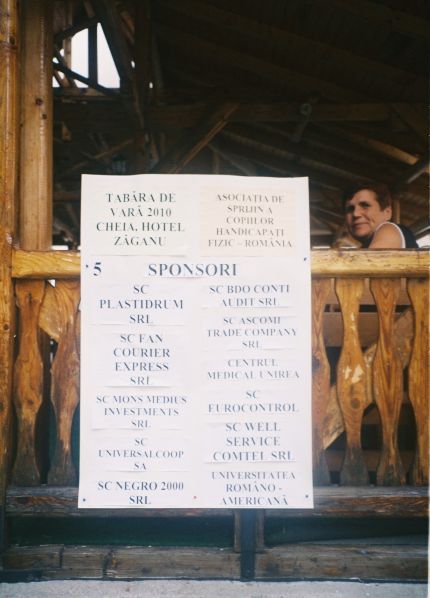 TABĂRA DE
VARĂ 2010
CHEIA, HOTEL
ZĂGANU
ASOCIAȚIA DE
SPRIJIN A
COPIILOR
HANDICAPAȚI
FIZIC – ROMÂNIA
5 SPONSORI
SC
PLASTIDRUM
SRL
SC FAN
COURIER
EXPRESS
SRL
SC MONS MEDIUS
INVESTMENTS
SRL
SC
UNIVERSALCOOP
SA
SC NEGRO 2000
SRL
SC BDO CONTI
AUDIT SRL
SC ASCOMI
TRADE COMPANY
SRL
CENTRUL
MEDICAL UNIREA
SC
EUROCONTROL
SC WELL
SERVICE
COMTEL SRL
UNIVERSITATEA
ROMÂNO -
AMERICANĂ